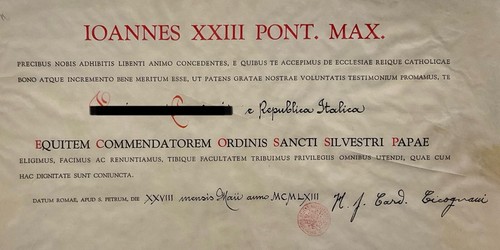 IOANNES XXIII PONT. MAX.
PRECIBUS NOBIS ADHIBITIS LIBENTI ANIMO CONCEDENTES, E QUIBUS TE ACCEPIMUS DE ECCLESIAE REIQUE CATHOLICAE
BONO ATQUE INCREMENTO BENE MERITUM ESSE, UT PATENS GRATAE NOSTRAE VOLUNTATIS TESTIMONIUM PROMAMUS, TE
e Republica Italica
EQUITEM COMMENDATOREM ORDINIS SANCTI SILVESTRI PAPAE
ELIGIMUS, FACIMUS AC RENUNTIAMUS, TIBIQUE FACULTATEM TRIBUIMUS PRIVILEGIIS OMNIBUS UTENDI, QUAE CUM
HAC DIGNITATE SUNT CONIUNCTA.
DATUM ROMAE, APUD S. PETRUM, DIE XXVIII mensis Maii anno MCMLXIII H. J. Card. Cicognani